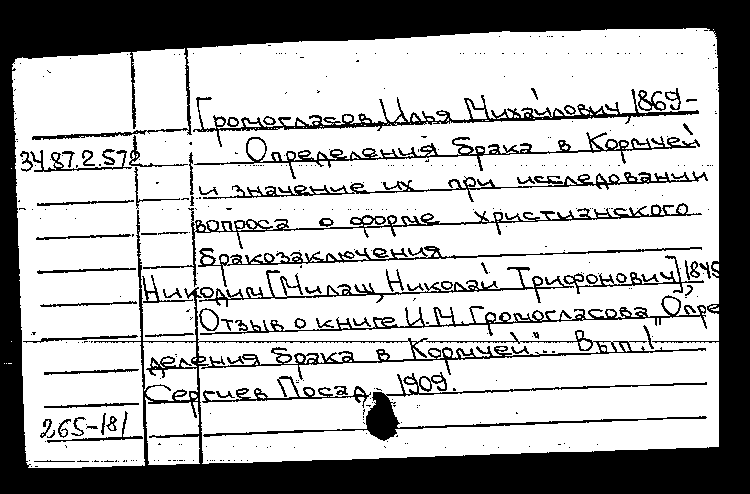 Громогласов, Илья Михайлович, 1869-
34.87.2.572 Определения брака в Кормчей
и значение их при исследовании
вопроса о форме христианского
бракозаключения
Никодим [Милаш, Николай Трифонович] 1845
Отзыв о книге И.М. Громогласова „Опре
деления брака в Кормчей"... Вып. 1.
Сергиев Посад, 1909.
265-181